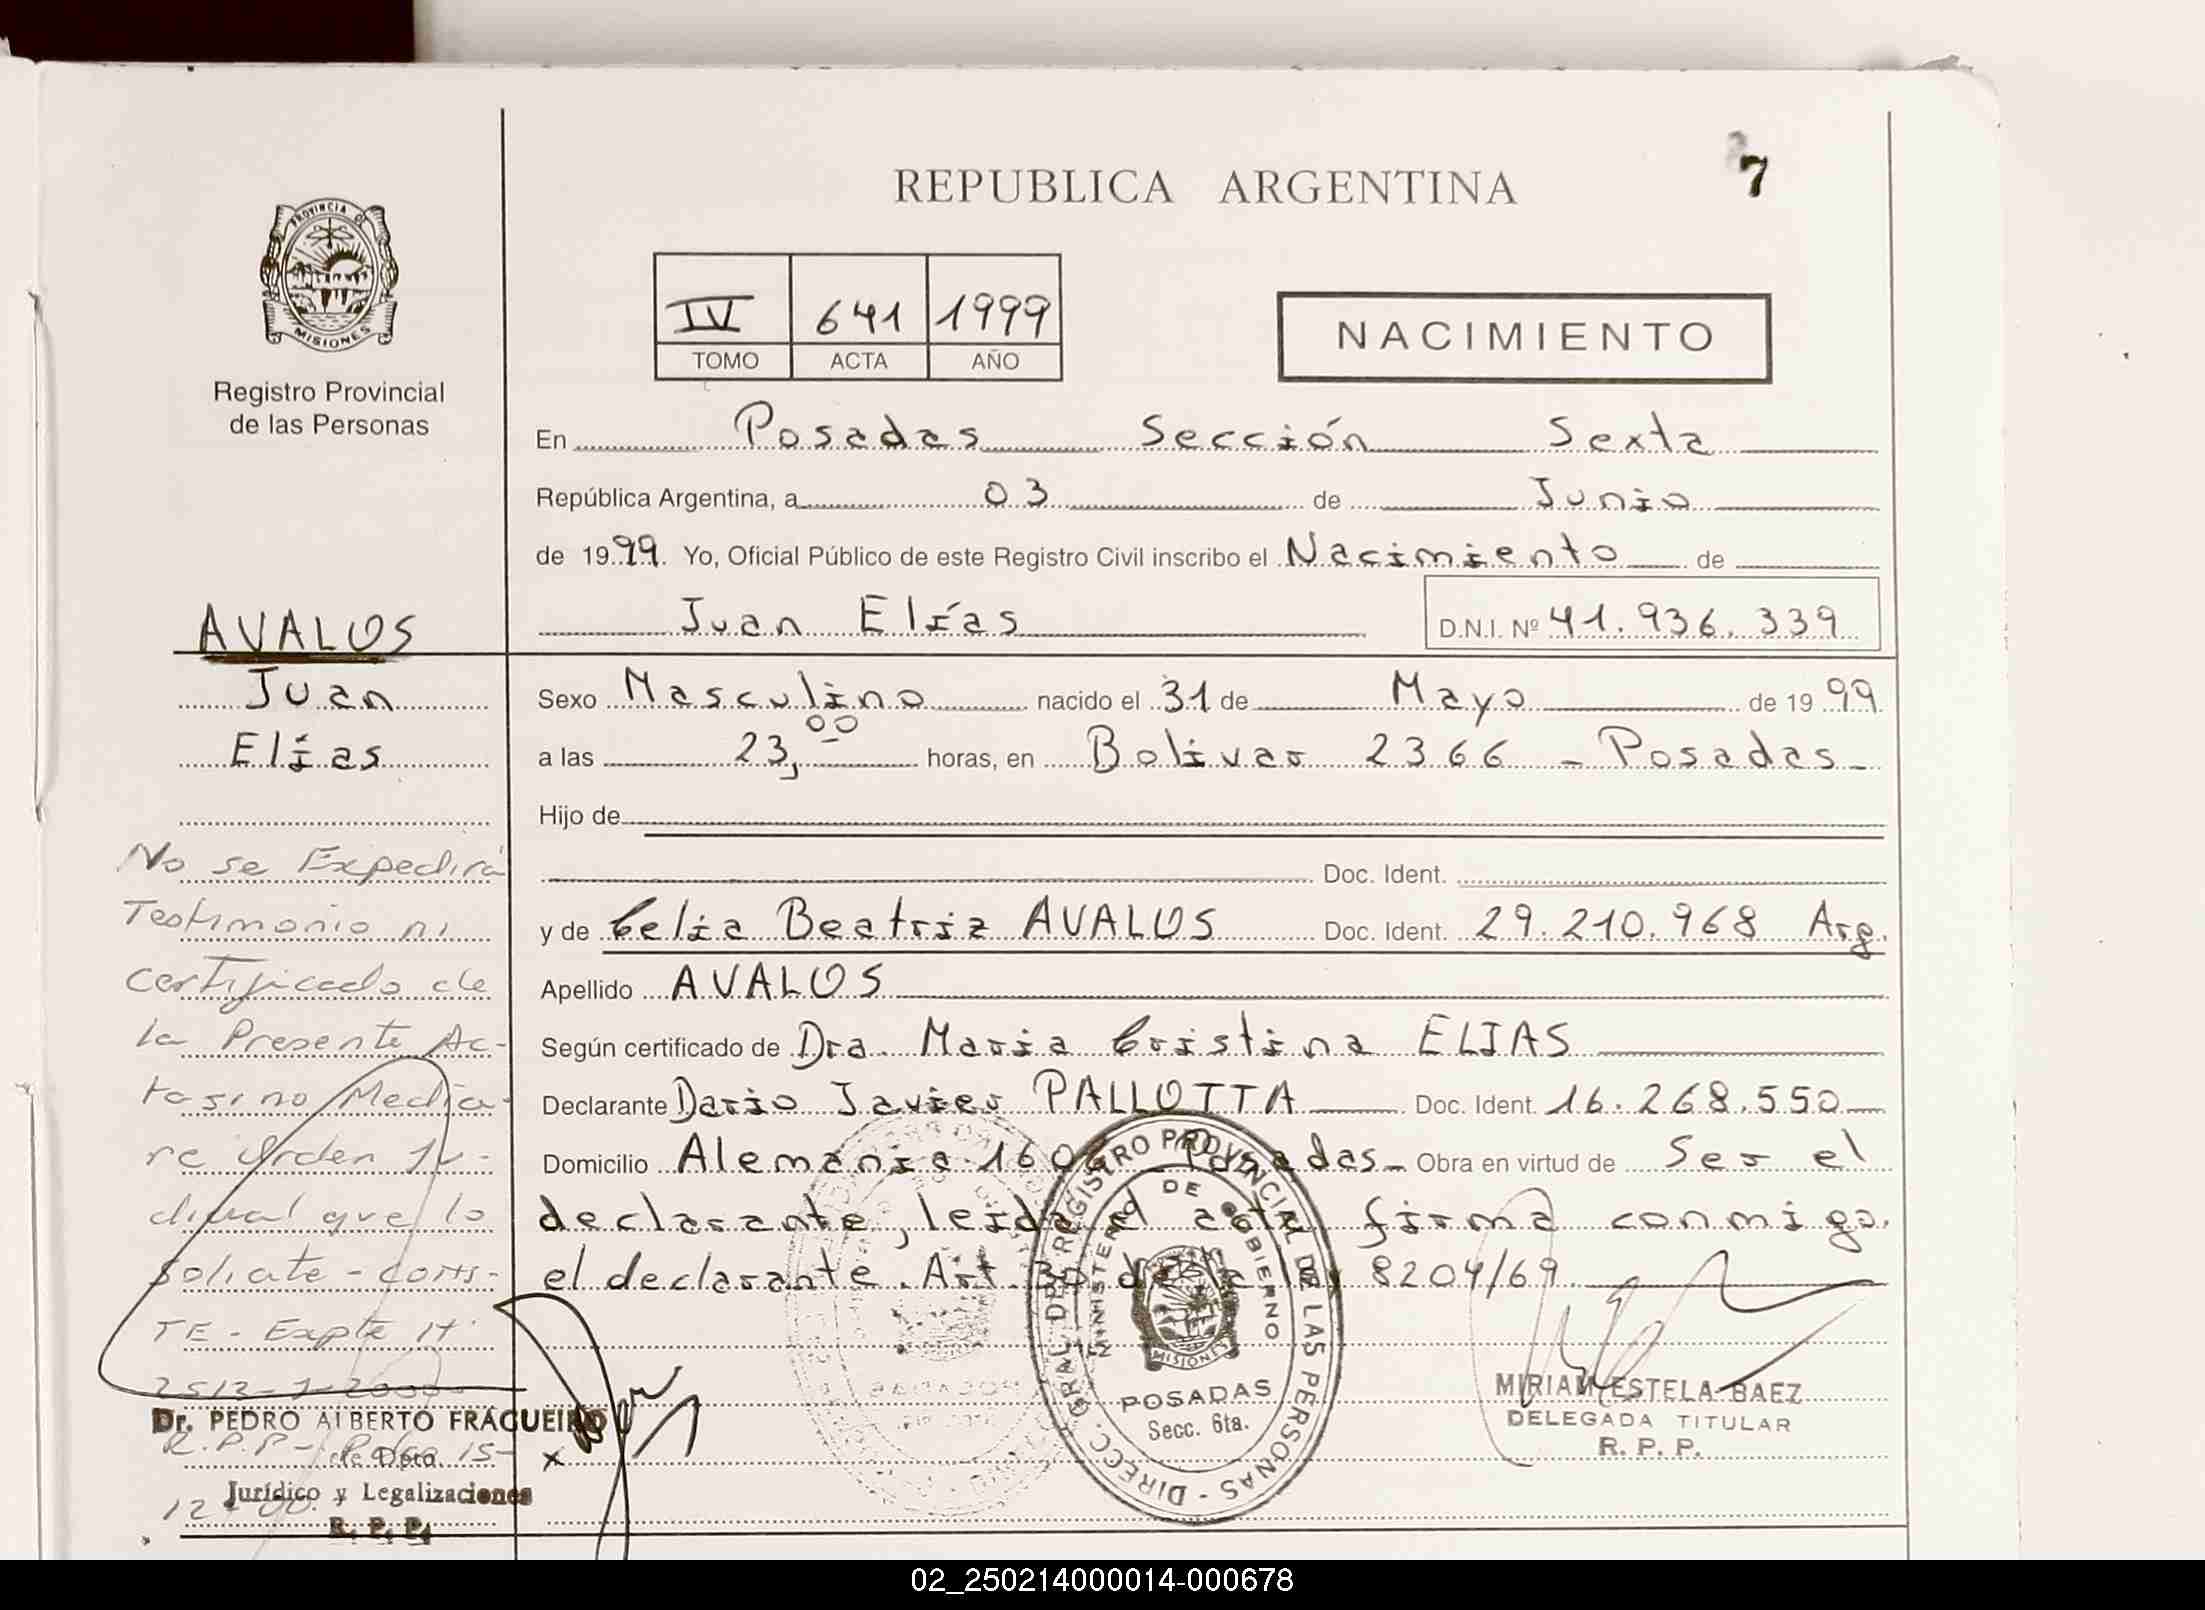 REPUBLICA ARGENTINA
7
PROVINCIA DE
MISIONES
Registro Provincial
de las Personas
IV 641 1999
TOMO ACTA AÑO
NACIMIENTO
En Posadas Sección Sexta
República Argentina, a 03 de Junio
de 1999. Yo, Oficial Público de este Registro Civil inscribo el Nacimiento de
Juan Elías D.N.I. Nº 41.936.339
AVALOS
Juan
Elías
Sexo Masculino nacido el 31 de Mayo de 1999
a las 23,00 horas, en Bolivar 2366 - Posadas -
Hijo de
Doc. Ident.
y de Celia Beatriz AVALOS Doc. Ident. 29.210.968 Arg.
Apellido AVALOS
Según certificado de Dra. Maria Cristina ELIAS
Declarante Dario Javier PALLOTTA Doc. Ident. 16.268.550
Domicilio Alemania 1606 Posadas - Obra en virtud de Ser el
declarante, leida el acta firma conmigo.
el declarante. Art. 30 de la ley 8204/69
No se Expedirá
Testimonio ni
certificado de
la Presente Ac-
ta si no Media-
re Orden Ju-
dicial que lo
Solicite - CONS-
TE - Expte Nº
2513-1-2000-
R.P.P - Pdas 15-
12-00.
Dr. PEDRO ALBERTO FRAGUEIRO
de Dpto.
Jurídico y Legalizaciones
R. P. P.
x
DIRECC. GRAL. DEL REGISTRO PROVINCIAL DE LAS PERSONAS -
MINISTERIO DE GOBIERNO
MISIONES
POSADAS
Secc. 6ta.
MIRIAM ESTELA BAEZ
DELEGADA TITULAR
R. P. P.
02_250214000014-000678